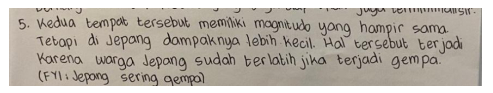 juga terminimalisir.
5. Kedua tempat tersebut memiliki magnitudo yang hampir sama.
Tetapi di Jepang dampaknya lebih kecil. Hal tersebut terjadi
karena warga Jepang sudah terlatih jika terjadi gempa.
(FYI: Jepang sering gempa)